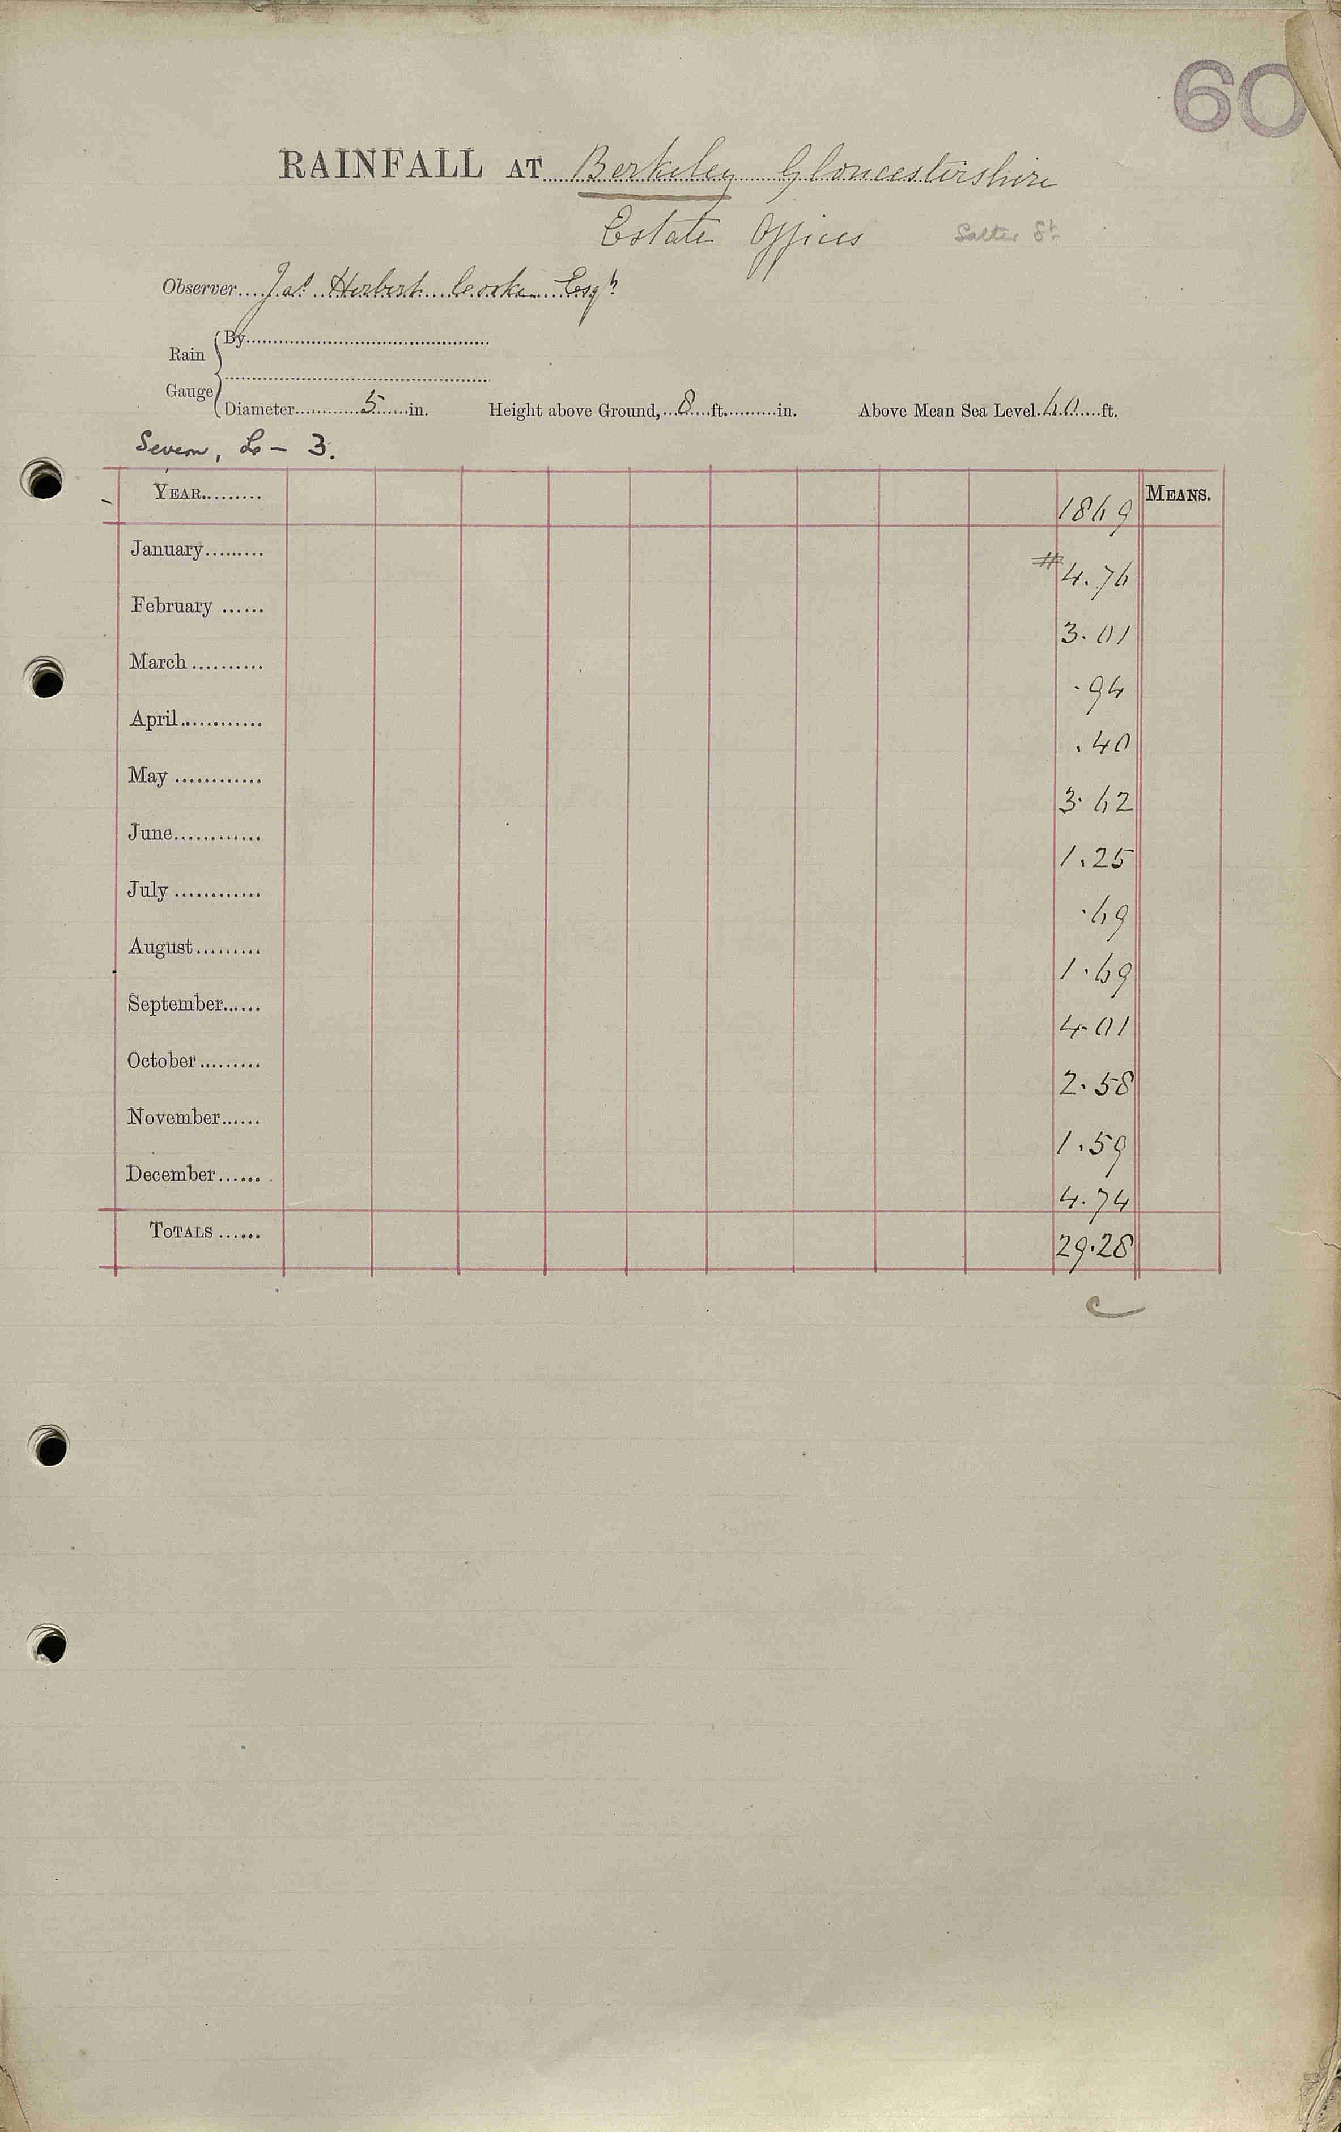 60
RAINFALL AT Berkeley Gloucestershire
Estate Offices Salter St
Observer Jas Herbert Cooke Esqr
Rain Gauge
By
Diameter 5 in. Height above Ground, 8 ft. in. Above Mean Sea Level 60 ft.
Severn, L - 3.
YEAR 1869 MEANS.
January # 4.76
February 3.01
March .94
April .40
May 3.62
June 1.25
July .69
August 1.69
September 4.01
October 2.58
November 1.59
December 4.74
TOTALS 29.28
c